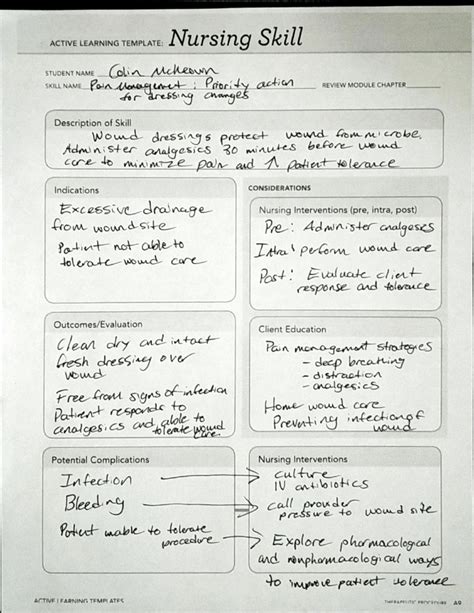 ACTIVE LEARNING TEMPLATE: Nursing Skill
STUDENT NAME Colin McKeown
SKILL NAME Pain Management: Priority action REVIEW MODULE CHAPTER
for dressing changes
Description of Skill
Wound dressings protect wound from microbe.
Administer analgesics 30 minutes before wound
care to minimize pain and ↑ patient tolerance
Indications
Excessive drainage
from wound site
Patient not able to
tolerate wound care
CONSIDERATIONS
Nursing Interventions (pre, intra, post)
Pre: Administer analgeses
Intra: perform wound care
Post: Evaluate client
response and tolerance
Outcomes/Evaluation
Clean dry and intact
fresh dressing over
wound
Free from signs of infection
Patient responds to
analgesics and able to
tolerate wound
care.
Client Education
Pain management strategies
- deep breathing
- distraction
- analgesics
Home wound care
Preventing infection of
wound
Potential Complications
Infection
Bleeding
Patient unable to tolerate
procedure
Nursing Interventions
culture
IV antibiotics
call provider
pressure to wound site
Explore pharmacological
and nonpharmacological ways
to improve patient tolerance
ACTIVE LEARNING TEMPLATES
THERAPEUTIC PROCEDURE A9